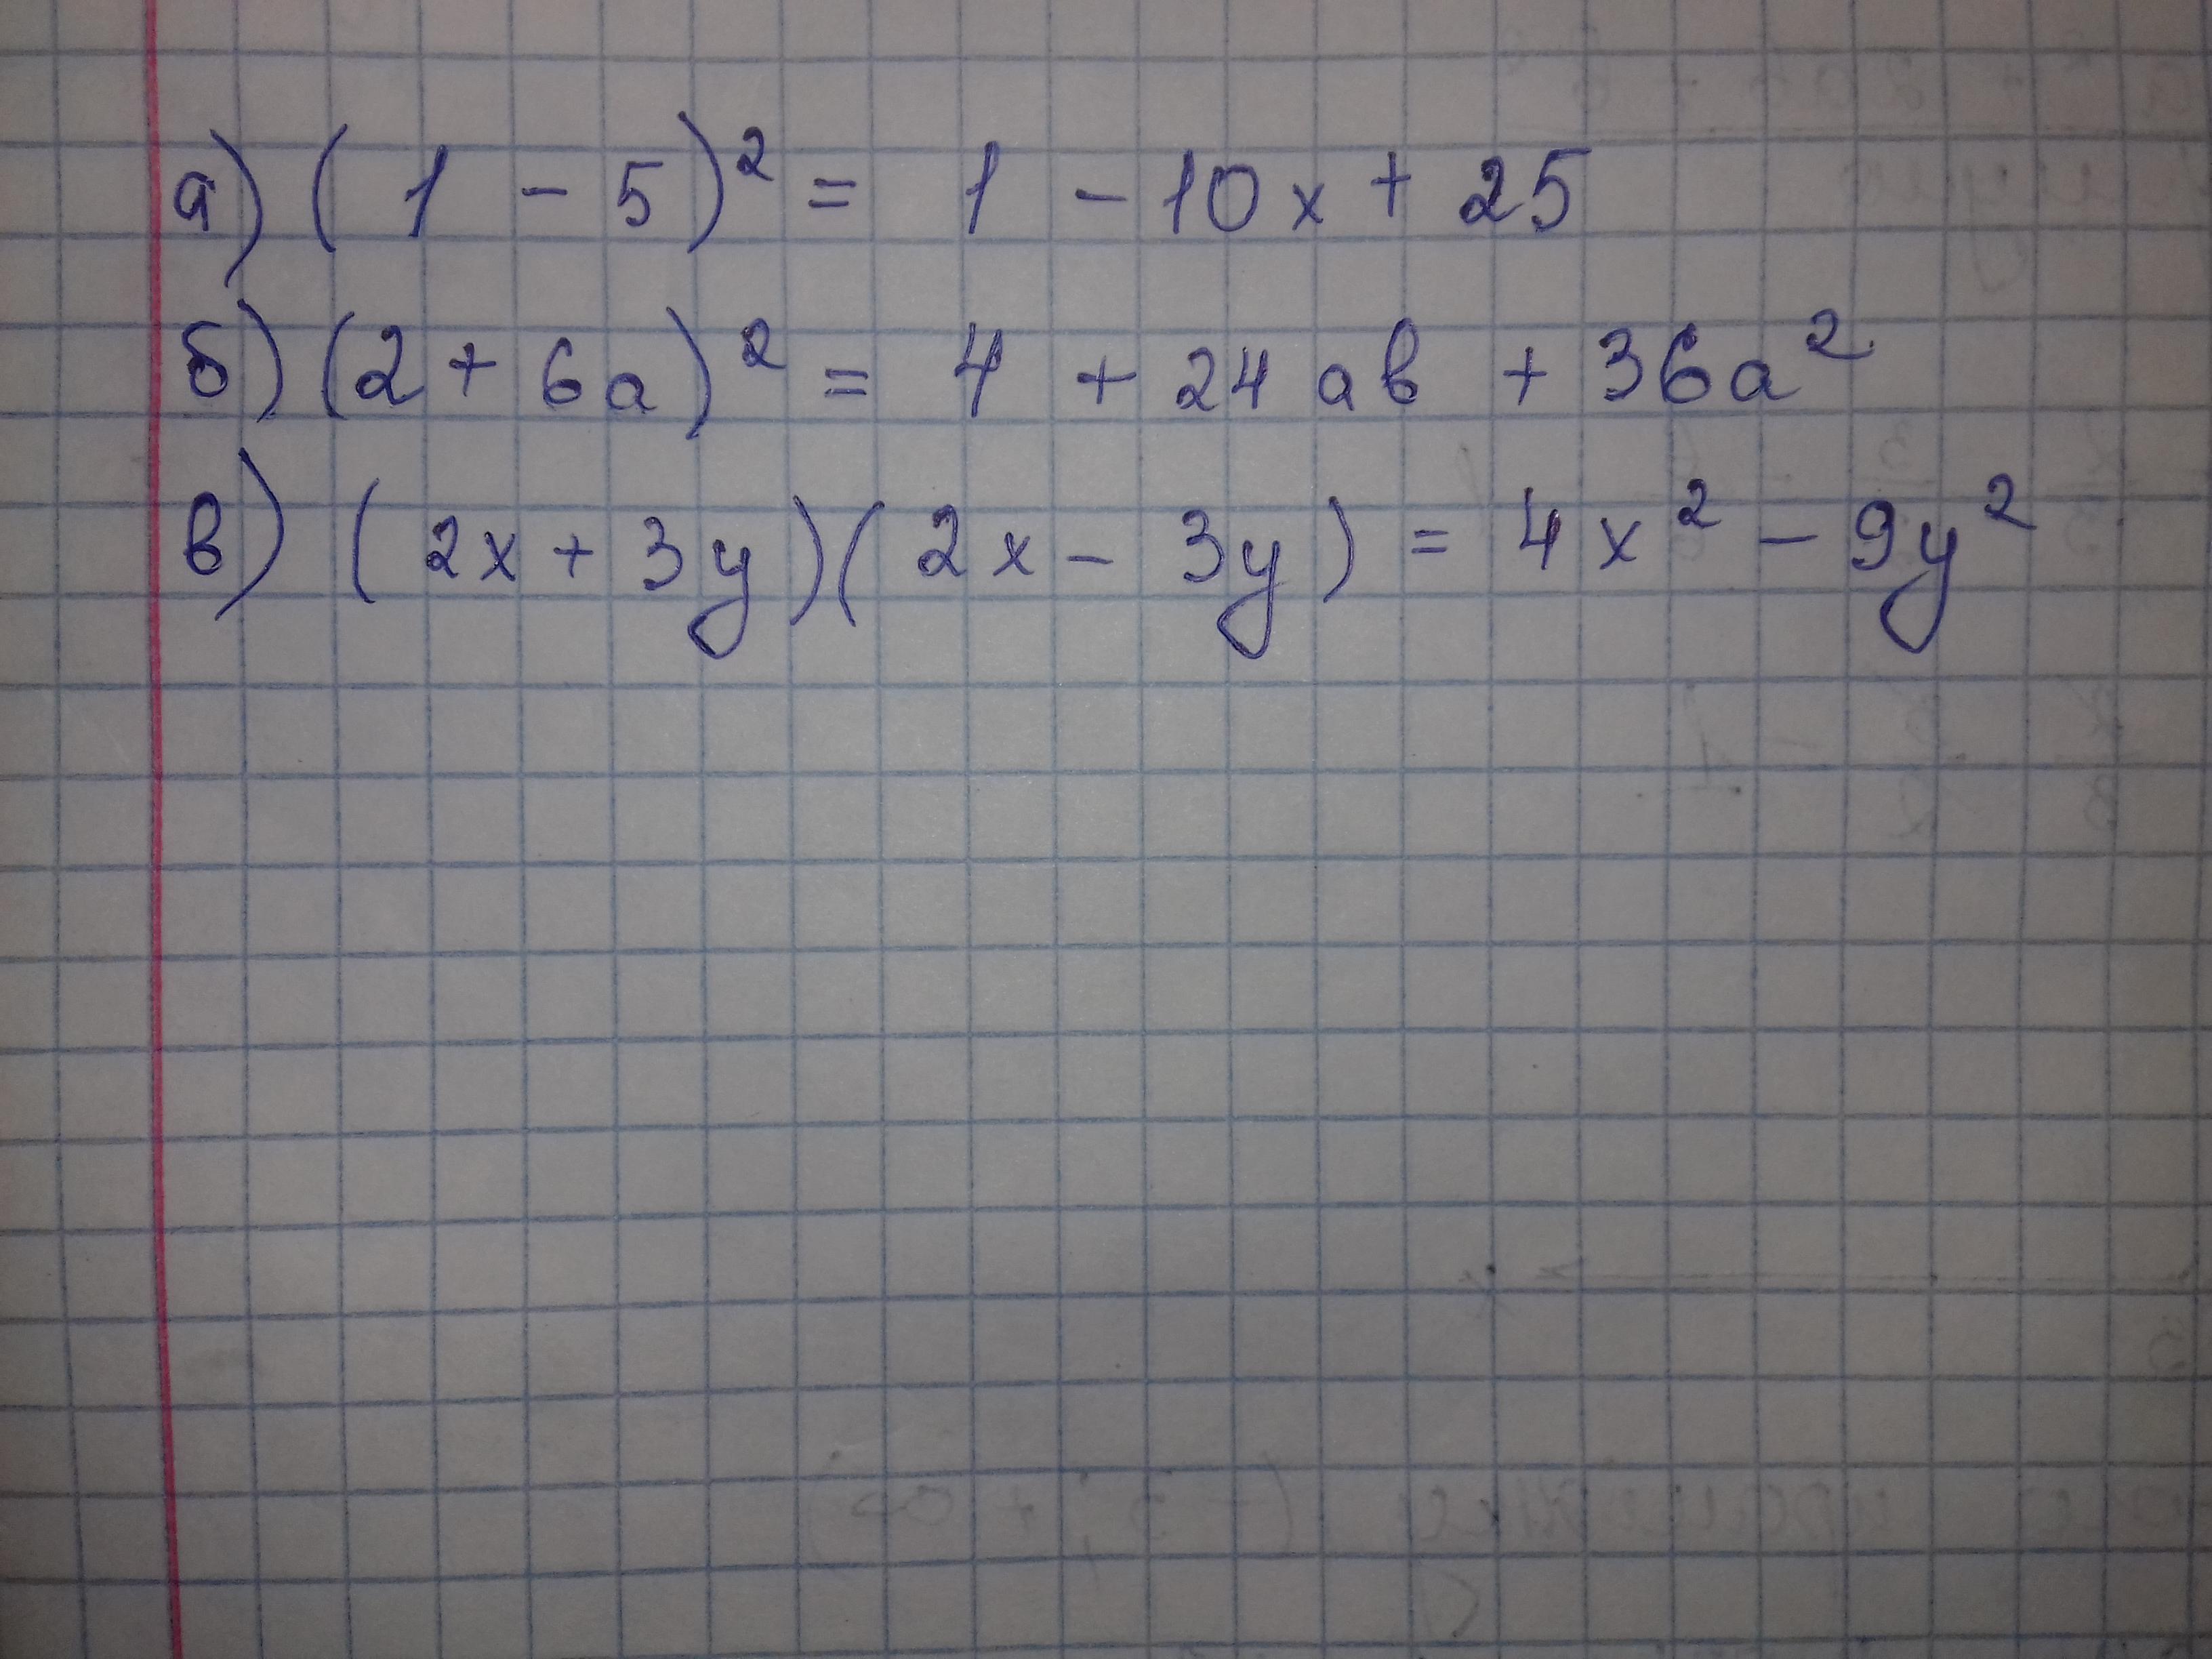 а) (1 - 5)² = 1 - 10x + 25
б) (2 + 6a)² = 4 + 24ab + 36a²
в) (2x + 3y)(2x - 3y) = 4x² - 9y²